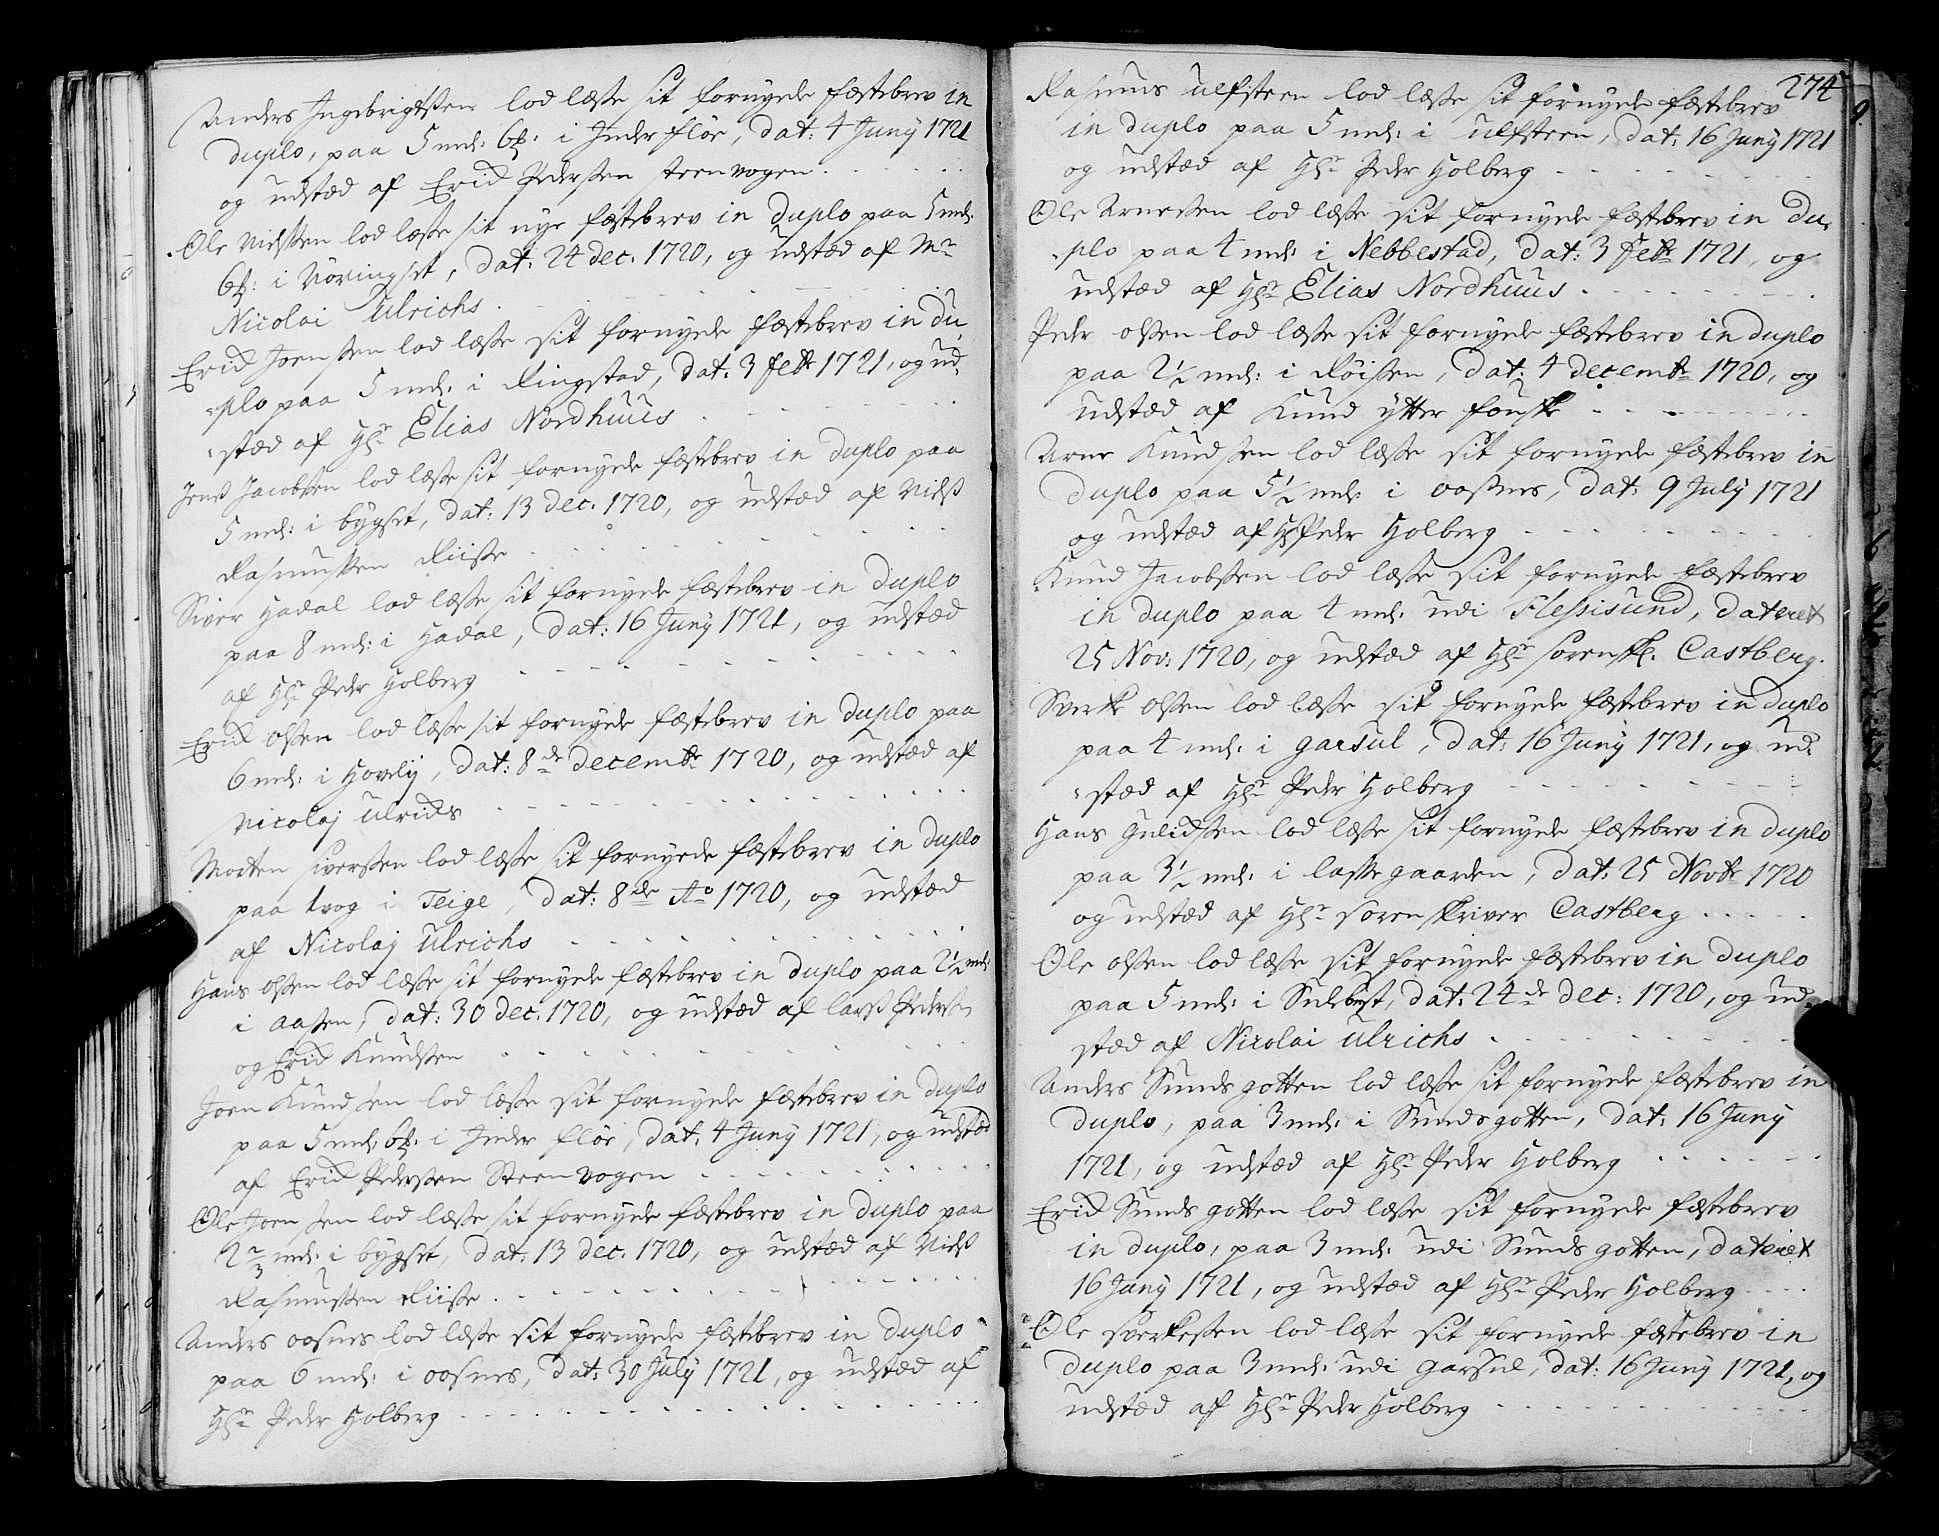 Anders Ingebrigtßen lod læße sit fornyede fæstebrev in
duplo, paa 5 mel: 6 ß: i Inder Flöe, dat: 4 Juny 1721
og udstæd af Erich Pederßen Steenvogen
Ole Nielßen lod læße sit nye fæstebrev in duplo paa 5 mel:
6 ß: i Vöringset, dat: 24 dec. 1720, og udstæd af Mr
Nicolai Ulrichs
Erich Joenßen lod læße sit fornyede fæstebrev in du
plo paa 5 mel: i Ringstad, dat: 3 febr 1721, og ud
stæd af Hr Elias Nordhuus
Jens Jacobßen lod læße sit fornyede fæstebrev in duplo paa
5 mel: i bygset, dat: 13 dec. 1720, og udstæd af Nielß
Rasmußen Riiße
Siver Hadal lod læße sit fornyede fæstebrev in duplo
paa 8 mel: i Hadal, dat: 16 Juny 1721, og udstæd
af Hr Peder Holberg
Erich Olßen lod læße sit fornyede fæstebrev in duplo paa
6 mel: i Hovlij, dat: 8de decembr 1720, og udstæd af
Nicolaj Ulrichs
Morten Sverßen lod læße sit fornyede fæstebrev in duplo
paa 1 vog i Teige, dat: 8de Ao 1720, og udstæd
af Nicolaj Ulrichs
Hans Olßen lod læße sit fornyede fæstebrev in duplo paa 2½ mel
i Aaßen, dat: 30 dec. 1720, og udstæd af Larß Pederß
og Erich Knudßen
Joen Knudßen lod læße sit fornyede fæstebrev in duplo
paa 5 mel: 6 ß: i Inder Flöe, dat: 4 Juny 1721, og udstæd
af Erich Pederßen Steenvogen
Ole Joenßen lod læße sit fornyede fæstebrev in duplo paa
2 2/3 mel: i bygset, dat: 13 dec. 1720, og udstæd af Nielß
Rasmußen Riiße
Anders Oosnes lod læße sit fornyede fæstebrev in duplo
paa 6 mel: i Oosnes, dat: 30 July 1721, og udstæd af
Hr Peder Holberg
274
Rasmus Ulfsteen lod læße sit fornyede fæstebrev
in duplo paa 5 mel: i Ulfsteen, dat: 16 Juny 1721
og udstæd af Hr Peder Holberg
Ole Arneßen lod læße sit fornyede fæstebrev in du
plo paa 4 mel: i Nebbestad, dat: 3 febr 1721, og
udstæd af Hr Elias Nordhuus
Peder Olßen lod læße sit fornyede fæstebrev in duplo
paa 2½ mel: i Röißen, dat: 4 decembr 1720, og
udstæd af Knud Ytter Fouske
Arne Knudßen lod læße sit fornyede fæstebrev in
duplo paa 5½ mel: i Oosnes, dat: 9 July 1721
og udstæd af Hr Peder Holberg
Knud Jacobßen lod læße sit fornyede fæstebrev
in duplo paa 4 mel: udi Flessisund, dateret
25 Nov: 1720, og udstæd af Hr Sorenskr. Castberg.
Sverke Olßen lod læße sit fornyede fæstebrev in duplo
paa 4 mel: i Garsul, dat: 16 Juny 1721, og ud
stæd af Hr Peder Holberg
Hans Gulichßen lod læße sit fornyede fæstebrev in duplo
paa 3½ mel: i Laßegaarden, dat: 25 Novbr 1720
og udstæd af Hr Sorenskriver Castberg
Ole Olßen lod læße sit fornyede fæstebrev in duplo
paa 5 mel: i Sulebust, dat: 24de dec: 1720, og ud
stæd af Nicolai Ulrichs
Anders Sundsgotten lod læße sit fornyede fæstebrev in
duplo, paa 3 mel: i Sundsgotten, dat: 16 Juny
1721, og udstæd af Hr Peder Holberg
Erich Sundsgotten lod læße sit fornyede fæstebrev
in duplo, paa 3 mel: udi Sundsgotten, dateret
16 Juny 1721, og udstæd af Hr Peder Holberg
Ole Sverkeßen lod læße sit fornyede fæstebrev in
duplo paa 3 mel: udi Garsul, dat: 16 Juny 1721, og
udstæd af Hr Peder Holberg